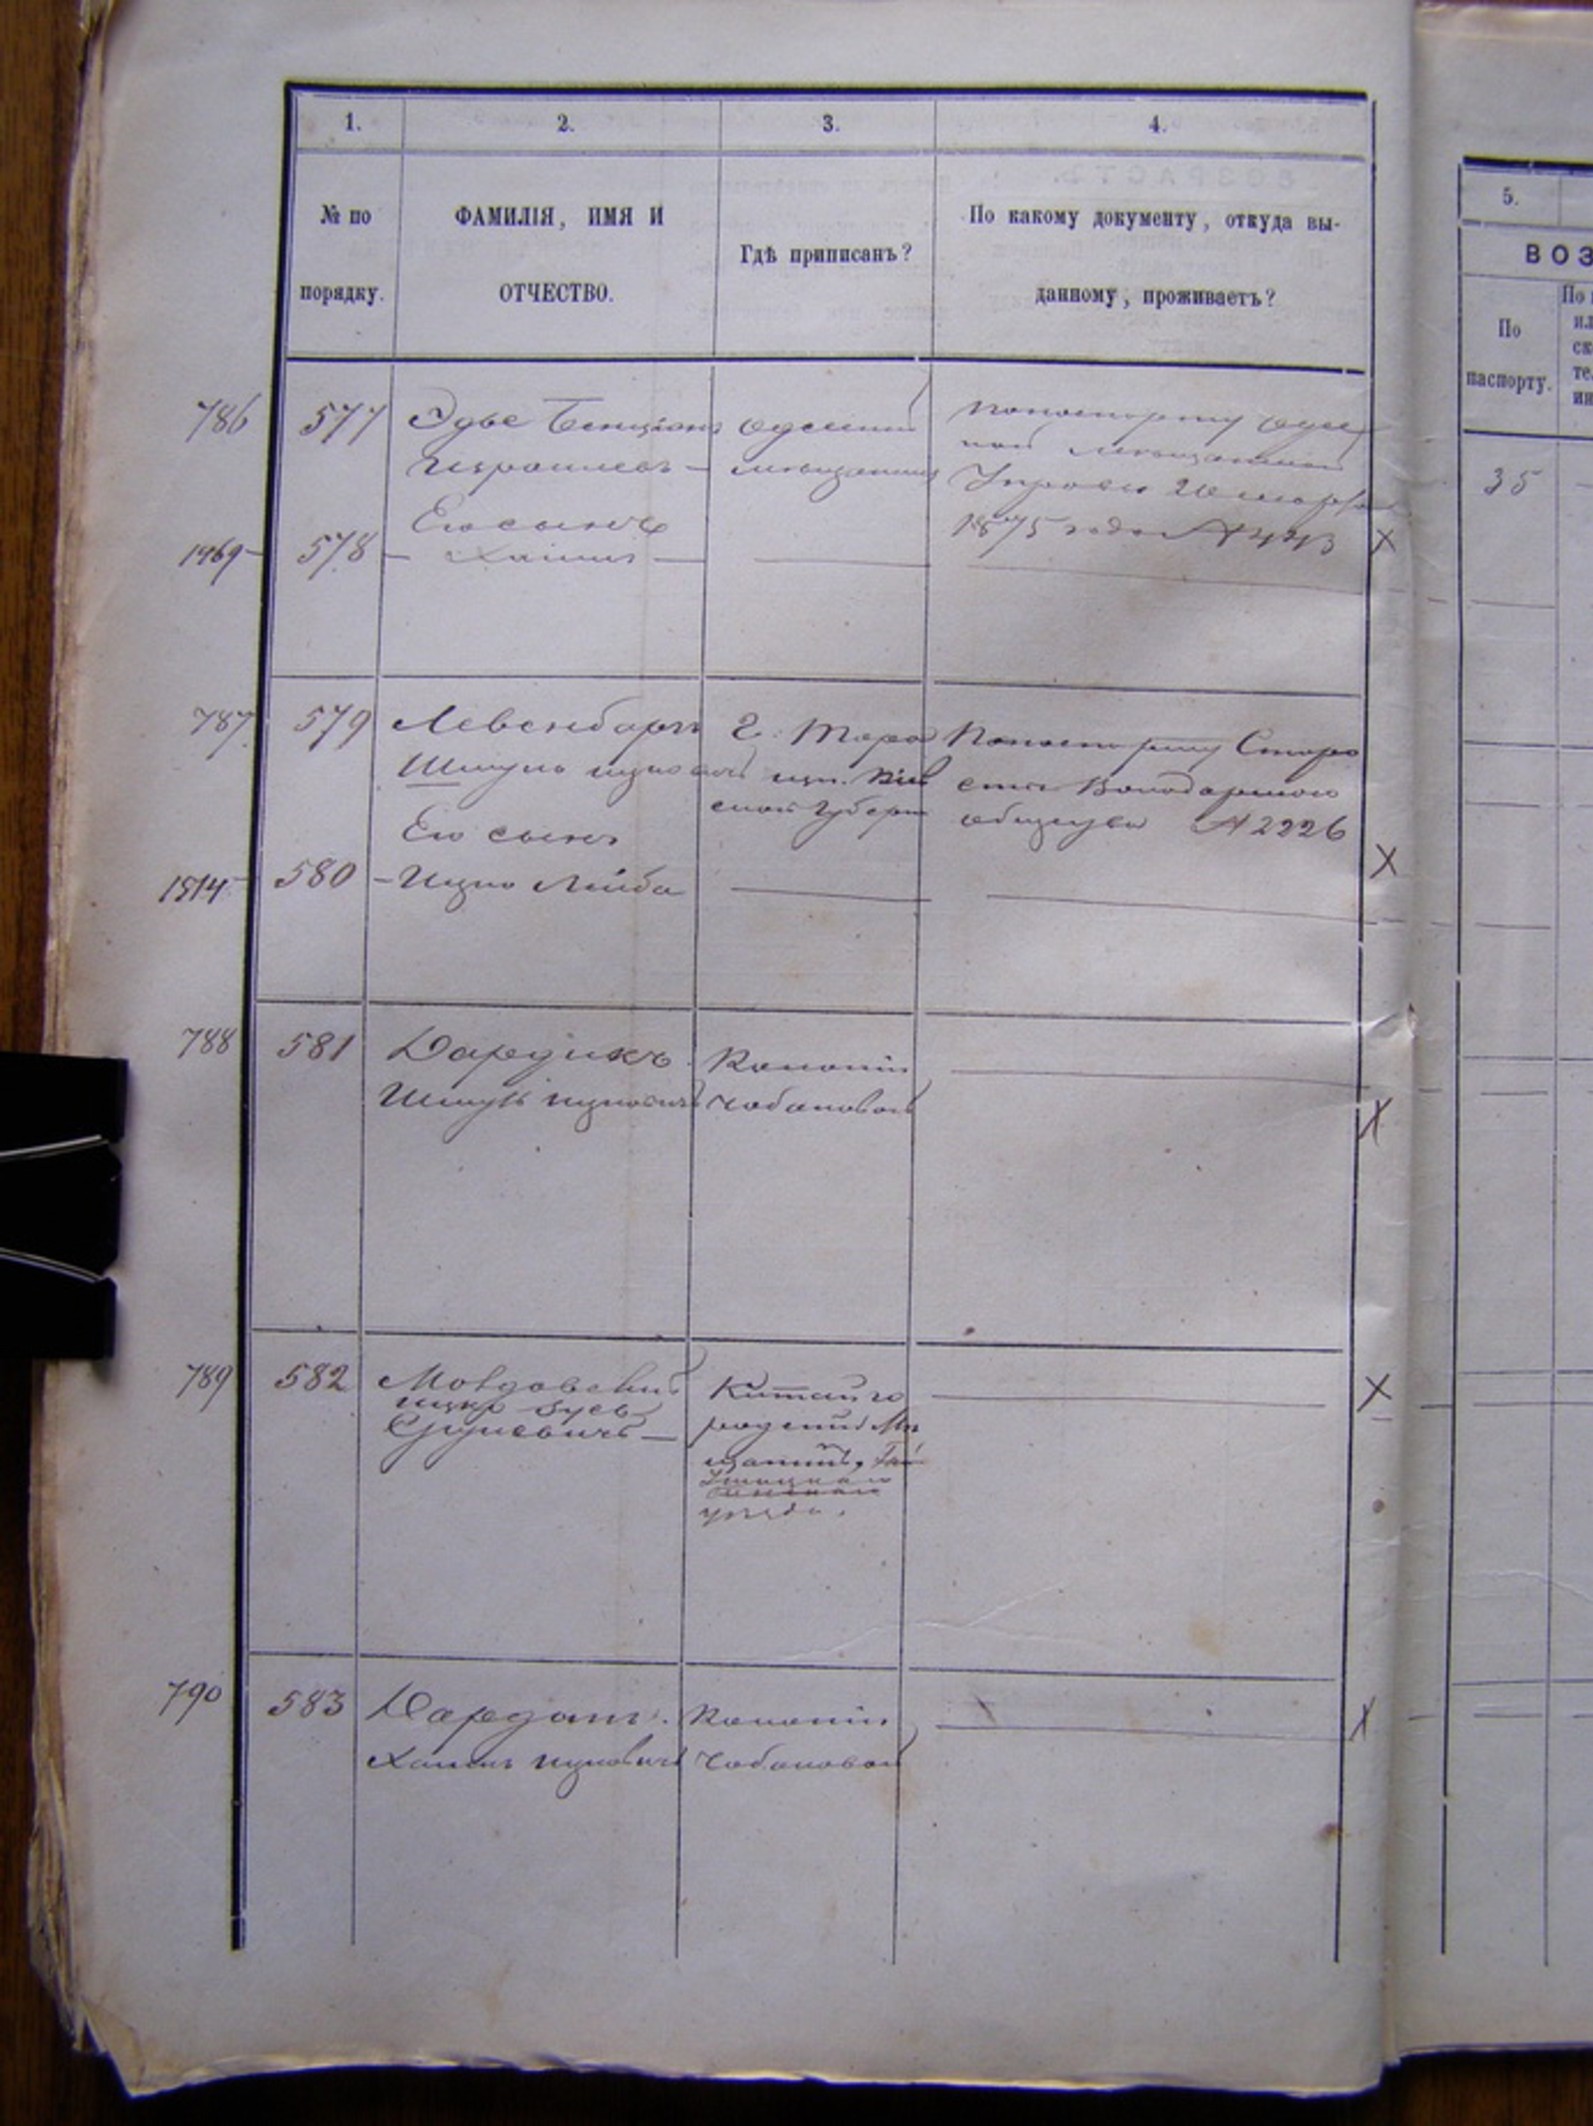 1. 2. 3. 4.
№ по порядку.
ФАМИЛІЯ, ИМЯ И
ОТЧЕСТВО.
Гдѣ приписанъ?
По какому документу, откуда вы-
данному, проживаетъ?
5.
ВОЗ
По
паспорту.
786 577 Эдве Бенціонъ
Израилевъ —
одесскій
мѣщанинъ
По паспорту Одес
кой мѣщанской
Управы
1875 года № 443 X
35
Его сынъ
1469 — 578 — Хаимъ —
787 579 Левенбаргъ
Шмуль Ицковичъ
Г. Тара
ща. Кіев
ской Губерн
По паспорту Старо
сты Володарского
общества № 2226
Его сынъ
1514 580 — Ицко Лейба X
788 581 Дардикъ
Шмуль Ицковичъ
Колоніи
Чобановой X
789 582 Молдавскій
Ицко Зусь
Сруневичъ —
Китайго
родскій Мѣ
щанинъ,
уѣзда. X
790 583 Дардатъ.
Хаимъ Ицковичъ
Колоніи
Чобановой X